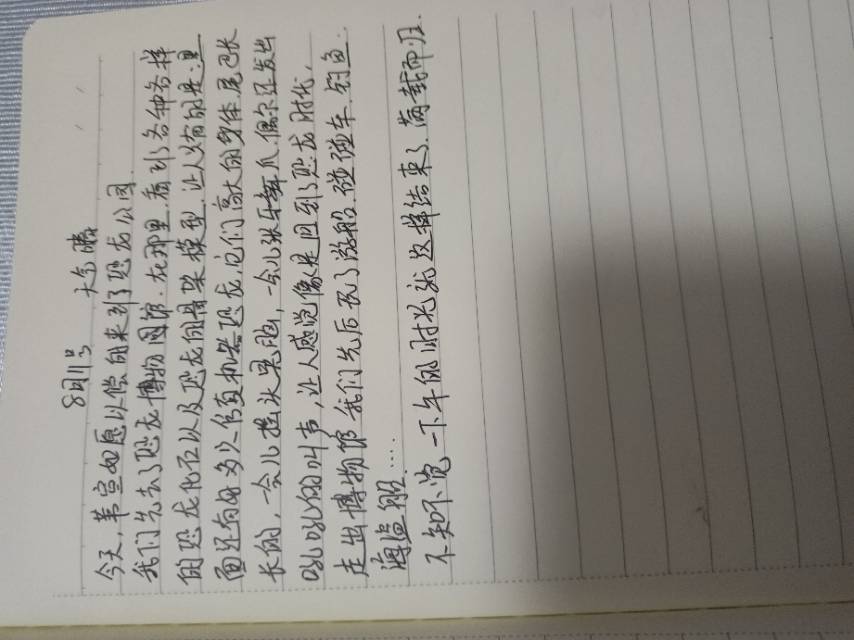 8月1号 天气晴
今天,萱如愿以偿的来到了恐龙公园.
我们先去了恐龙博物图馆.在那里看到了各种各样
的恐龙化石以及恐龙的骨架模型,让人的是,里
面还有好多人仿真机器恐龙,它们高大的身体尾巴长
长的,一会儿摇头晃脑,一会儿张牙舞爪.偶尔还发出
吼吼的叫声,让人感觉像是回到了恐龙时代.
走出博物馆我们先后玩了游船.碰碰车.钓鱼.
海盗船....
不知不觉一下午的时光就这样结束了,满载而归.